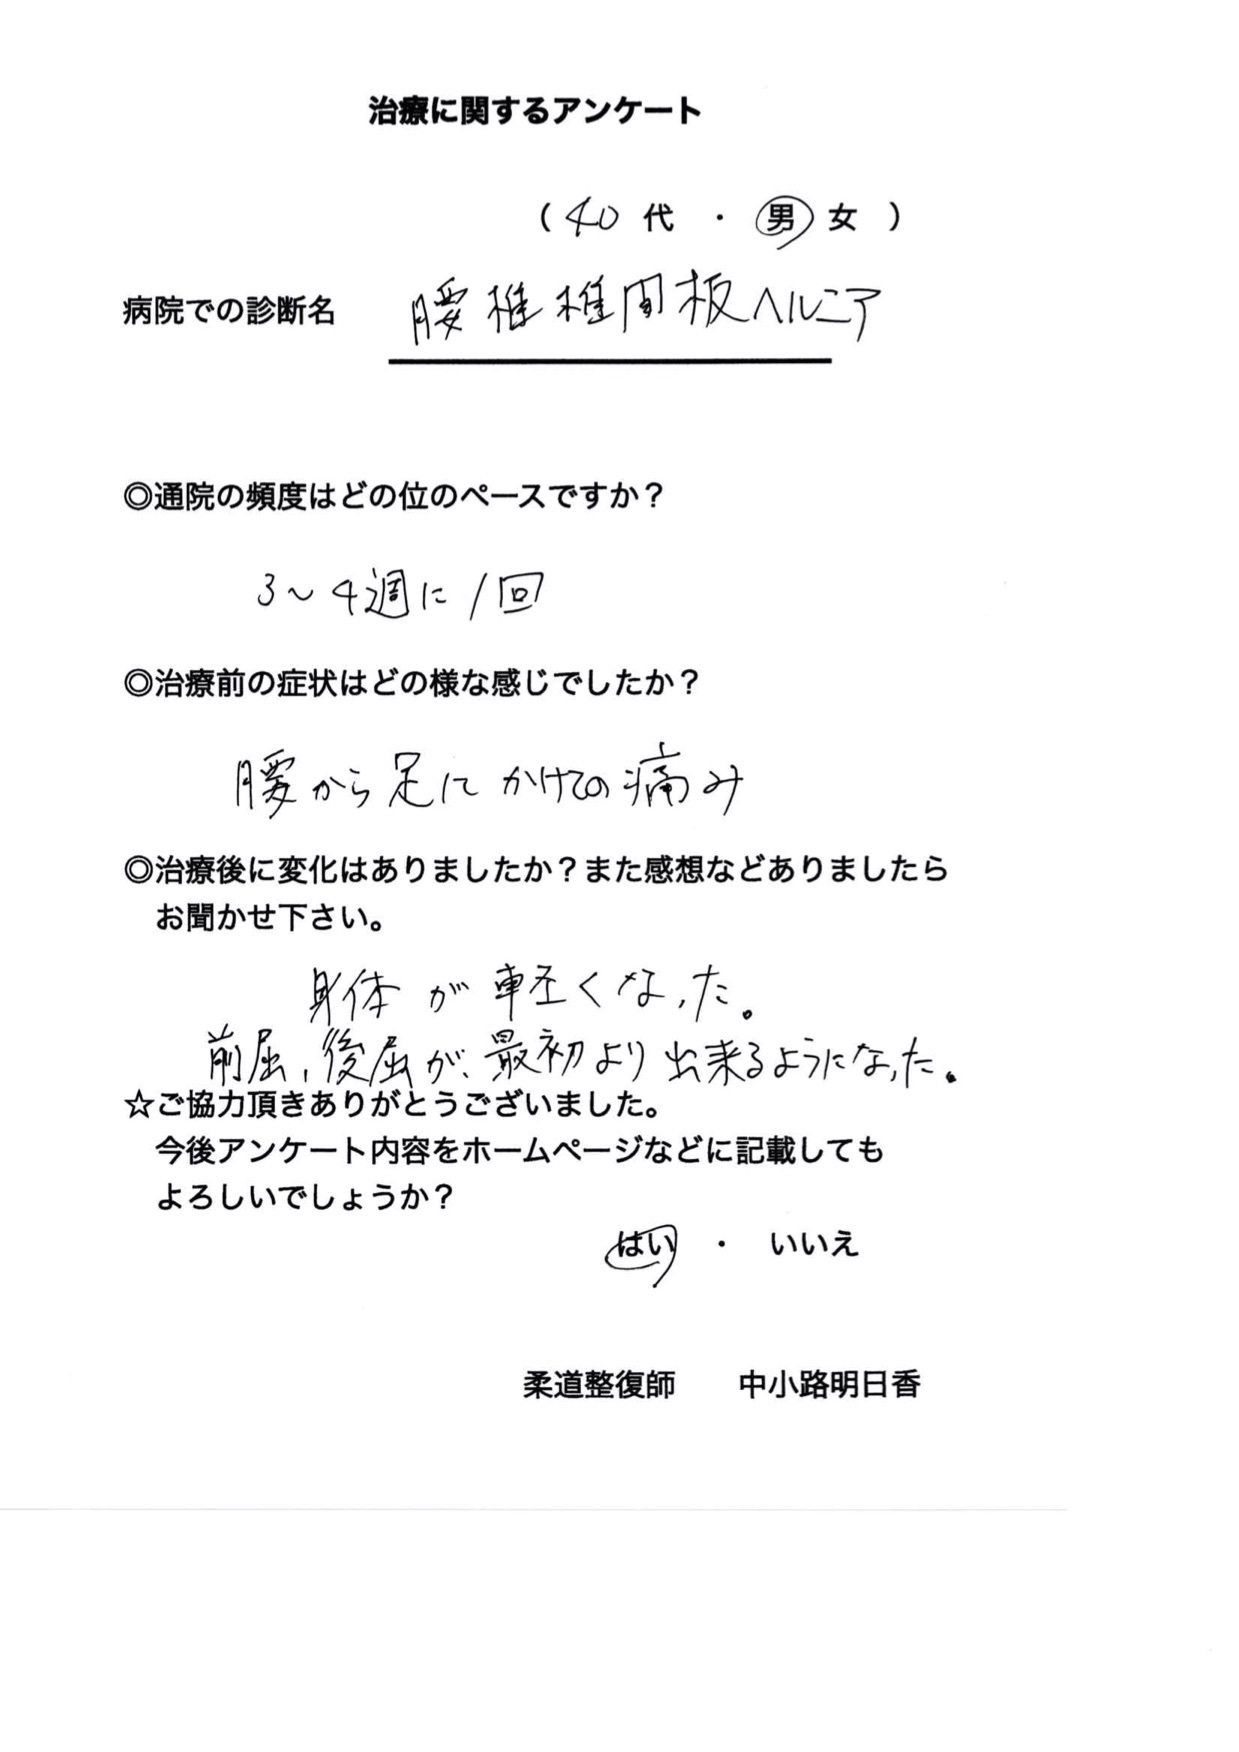 治療に関するアンケート
( 40 代 ・ 男 女 )
病院での診断名 腰椎椎間板ヘルニア
◎通院の頻度はどの位のペースですか？
3～4週に1回
◎治療前の症状はどの様な感じでしたか？
腰から足にかけての痛み
◎治療後に変化はありましたか？また感想などありましたら
お聞かせ下さい。
身体が軽くなった。
前屈、後屈が、最初より出来るようになった。
☆ご協力頂きありがとうございました。
今後アンケート内容をホームページなどに記載しても
よろしいでしょうか？
はい ・ いいえ
柔道整復師 中小路明日香